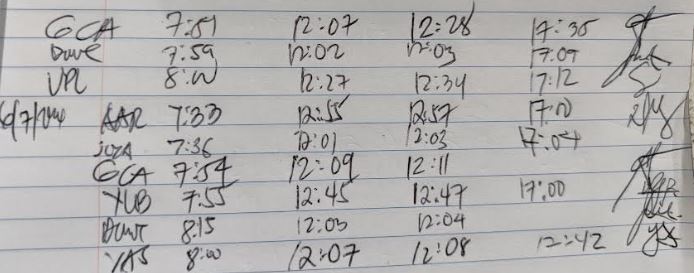 GCA 7:51 12:07 12:28 17:35
Dave 7:59 12:02 12:03 17:07
VPL 8:00 12:27 12:34 17:12
AAR 7:33 12:55 12:57 17:00
7:36 12:01 12:03 17:04
GCA 7:54 12:09 12:11
YUB 7:55 12:45 12:47 17:00
Dave 8:15 12:03 12:04
YAS 8:00 12:07 12:08 12:42